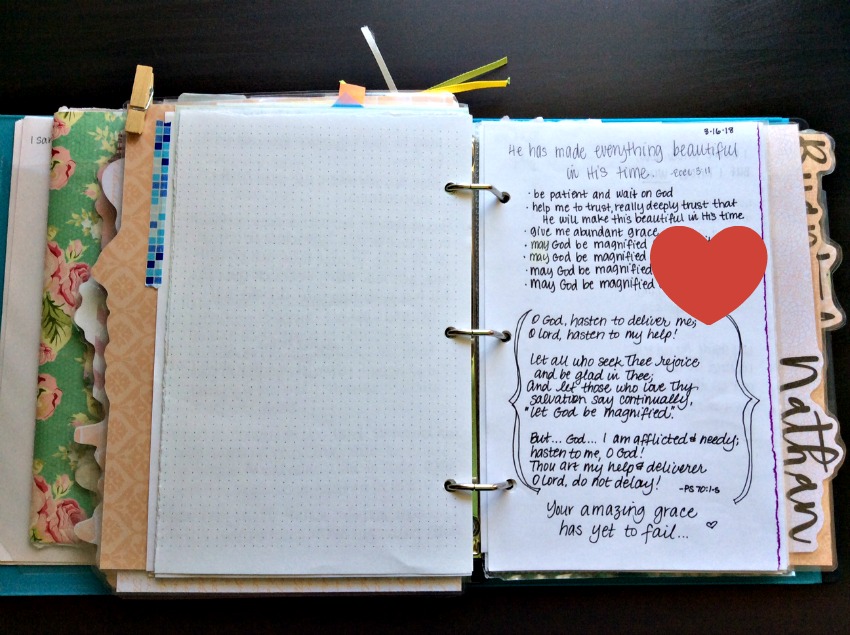 I sa
3-16-18
He has made everything beautiful
in His time. -Eccl. 3:11
· be patient and wait on God
· help me to trust, really deeply trust that
He will make this beautiful in His time
· give me abundant grace
· may God be magnified
· may God be magnified
· may God be magnified
· may God be magnified
O God, hasten to deliver me;
O Lord, hasten to my help!
Let all who seek Thee rejoice
and be glad in Thee;
And let those who love Thy
salvation say continually,
"Let God be magnified".
But... God... I am afflicted & needy;
hasten to me, O God!
Thou art my help & deliverer
O Lord, do not delay!
-PS 70:1-5
Your amazing grace
has yet to fail... ♡
Nathan